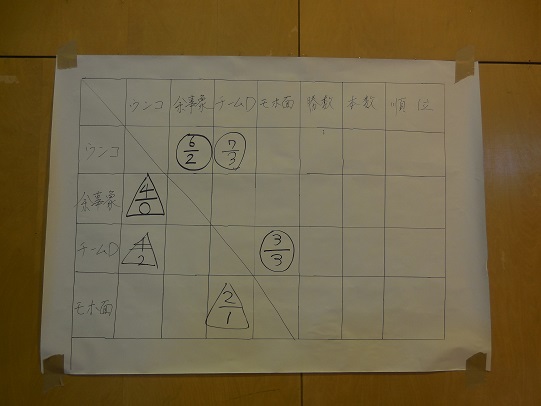 ウンコ 余事象 チームD モホ面 勝数 本数 順位
ウンコ 6/2 7/3
余事象 4/0
チームD 4/2 3/3
モホ面 2/1